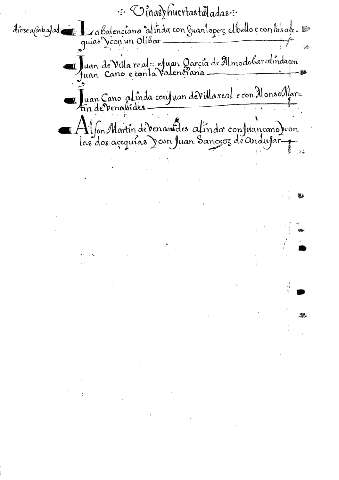 Viñas y huertas taladas
La balenciana alinda con Juan lopez el bello e con las ace
quias y con un olibar
Juan de Villa real e Juan Garcia de Almodobar alinda con
Juan Cano e con la Valenciana
Juan Cano alinda con Juan de Villa real e con Alonso Mar
tin de Benabides
Alfon Martin de Benauides alinda con Juan cano y con
las dos açequias y con Juan Sanchez de Andujar